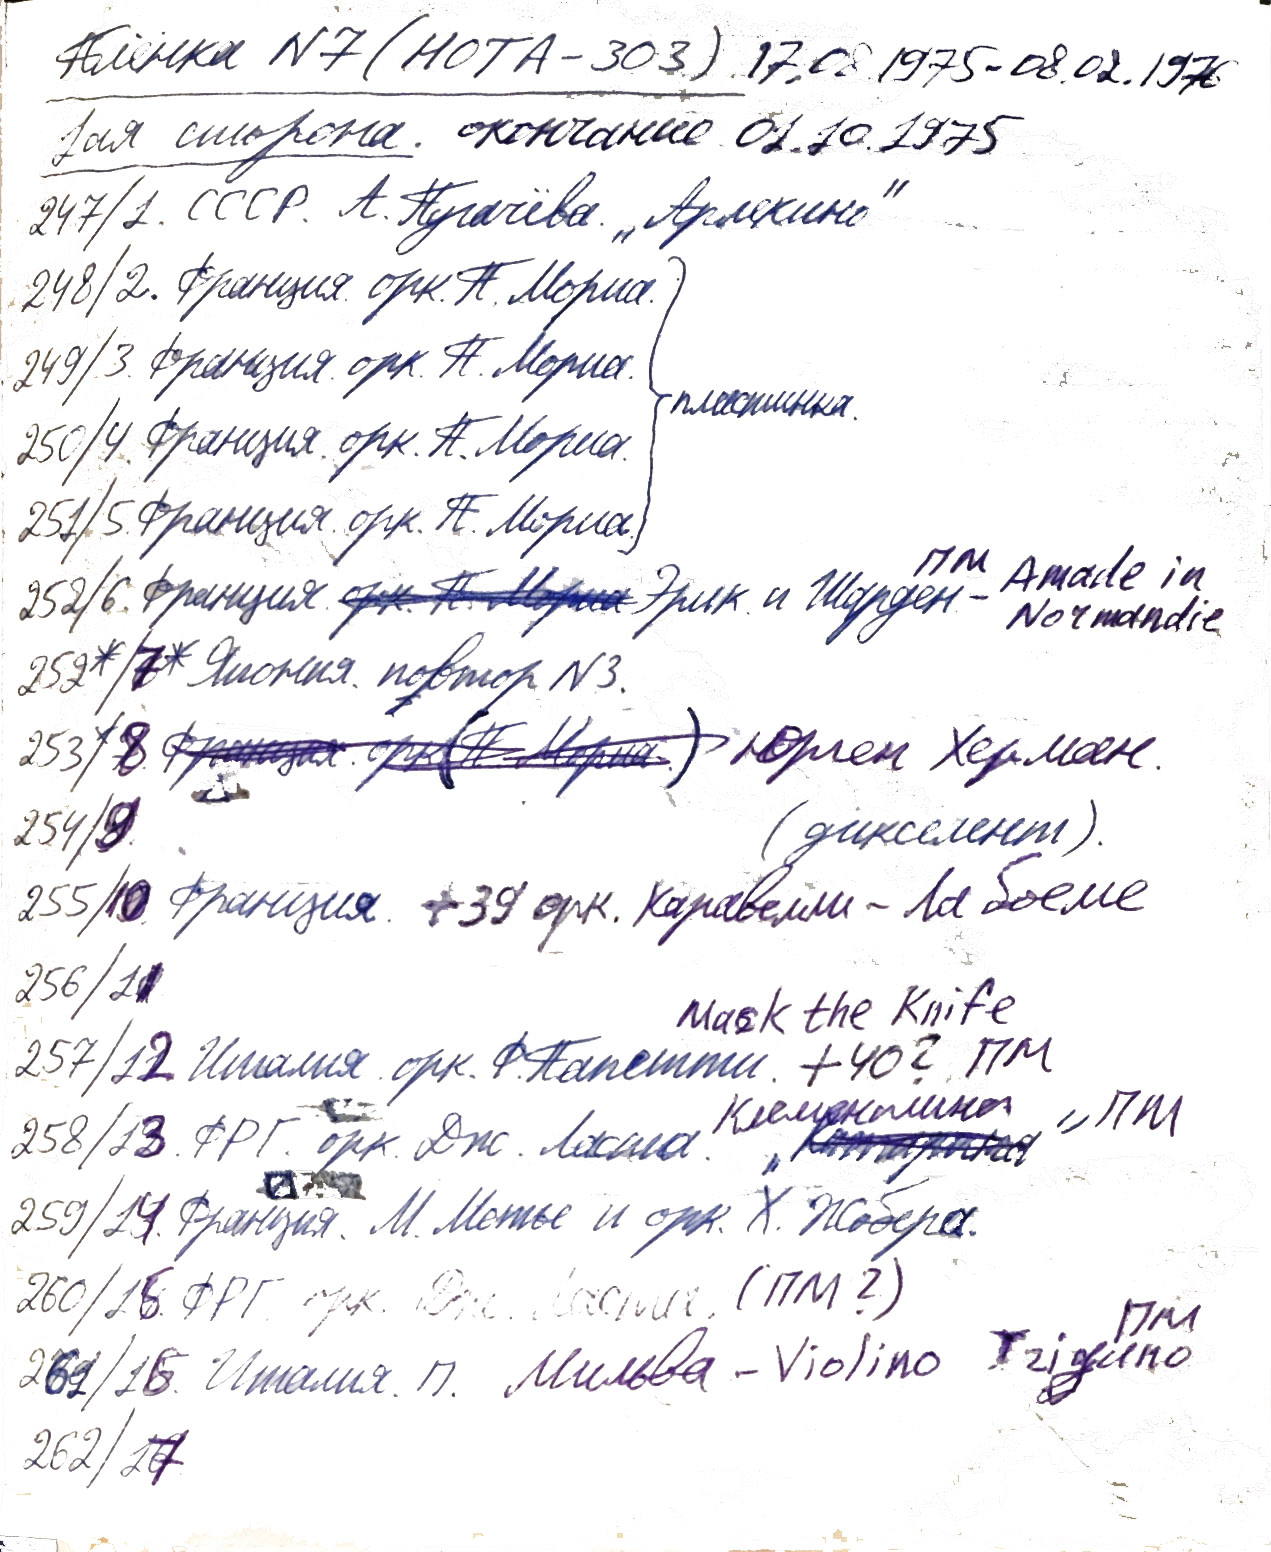 Плёнка N7 (НОТА-303) 17.08.1975-08.02.1976
1ая сторона. окончание 01.10.1975
247/1. СССР. А. Пугачёва. „Арлекино"
248/2. Франция. орк. П. Мориа.
249/3. Франция. орк. П. Мориа.
пластинка.
250/4. Франция. орк. П. Мориа.
251/5. Франция. орк. П. Мориа.
252/6. Франция. орк. П. Мориа Эрик и Шарден - ПМ Amade in
Normandie
252*/7* Япония. повтор N3.
253/8. Франция. орк (П. Мориа.) Юрген Херман.
254/9. (дикселент).
255/10. Франция. +39 орк. Каравелли - La боеме
256/11
Mack the Knife
257/12 Италия. орк. Ф. Папетти. +40? ПМ
258/13. ФРГ. орк. Дж. Ласта. „Клементина" ПМ
259/14. Франция. М. Матье и орк. Х. Жобера.
260/15. ФРГ. орк. Дж. Ласта. (ПМ?)
ПМ
261/16. Италия. п. Мильва - Violino Tzigano
262/17